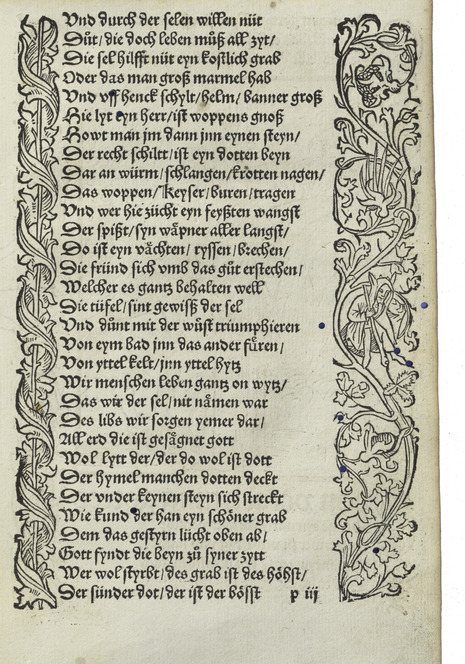 Vnd durch der selen willen nüt
Düt/die doch leben můß all zyt/
Die sel hilfft nüt eyn kostlich grab
Oder das man groß marmel hab
Vnd vff henck schylt/helm/banner groß
Hie lyt eyn herr/ist woppens gnoß
Howt man jm dann jnn eynen steyn/
Der recht schiltt/ist eyn dotten beyn
Dar an würm/schlangen/krotten nagen/
Das woppen/Keyser/buren/tragen
Vnd wer hie zücht eyn feyßten wangst
Der spißt/syn wäpner aller langst/
Do ist eyn vächten/ryssen/brechen/
Die fründ sich vmb das gůt erstechen/
Welcher es gantz behalten well
Die tüfel/sint gewiß der sel
Vnd důnt mit der wůst triumphieren
Von eym bad jnn das ander fůren/
Von yttel kelt/jnn yttel hytz
Wir menschen leben gantz on wytz/
Das wir der sel/nit nämen war
Des libs wir sorgen yemer dar/
All erd die ist gesägnet gott
Wol lytt der/der do wol ist dott
Der hymel manchen dotten deckt
Der vnder keynen steyn sich streckt
Wie kund der han eyn schöner grab
Dem das gestyrn lücht oben ab/
Gott fyndt die beyn zů syner zytt
Wer wol styrbt/des grab ist des höhst/
Der sünder dot/der ist der bösst p iii